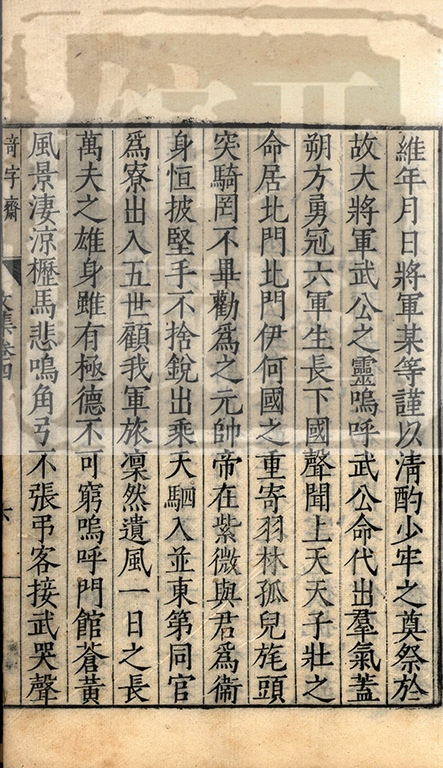 維年月日將軍某等謹以清酌少牢之奠祭於
故大將軍武公之靈嗚呼武公命代出羣氣蓋
朔方勇冠六軍生長下國聲聞上天天子壯之
命居北門北門伊何國之重寄羽林孤兒旄頭
突騎罔不畢勸爲之元帥帝在紫微與君爲衞
身恒披堅手不捨銳出乘天駟入並東第同官
爲寮出入五世顧我軍旅凛然遺風一日之長
萬夫之雄身雖有極德不可窮嗚呼門館蒼黃
風景淒涼櫪馬悲鳴角弓不張弔客接武哭聲
文集卷四
六